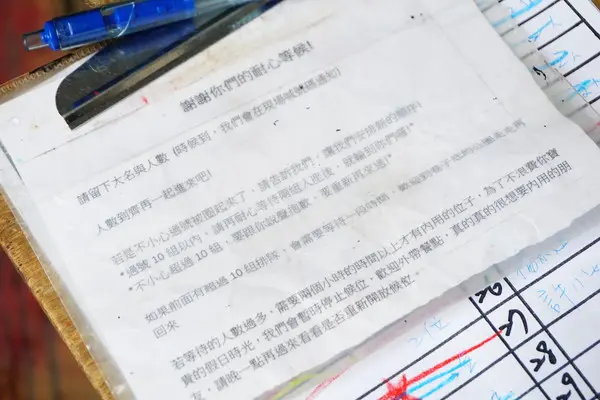 謝謝你們的耐心等候!
請留下大名與人數 (時候到，我們會在現場喊號碼通知)
人數到齊再一起進來吧!
若是不小心過號被跳起來了，請告訴我們；讓我們安排新的順序!
*過號 10 組以內，請再耐心等待兩組入座後，就輪到你們囉!"
*不小心超過 10 組，要跟你說聲抱歉，要重新再來過!"
如果前面有超過 10 組排隊，會需要等待一段時間，歡迎到巷子裡的小攤走走再
回來
若等待的人數過多，需要兩個小時的時間以上才有內用的位子，為了不浪費你寶
貴的假日時光，我們會暫時停止候位，歡迎外帶餐點，真的真的很想要內用的朋
友，請晚一點再過來看看是否重新開放候位。
2位
OK
OK